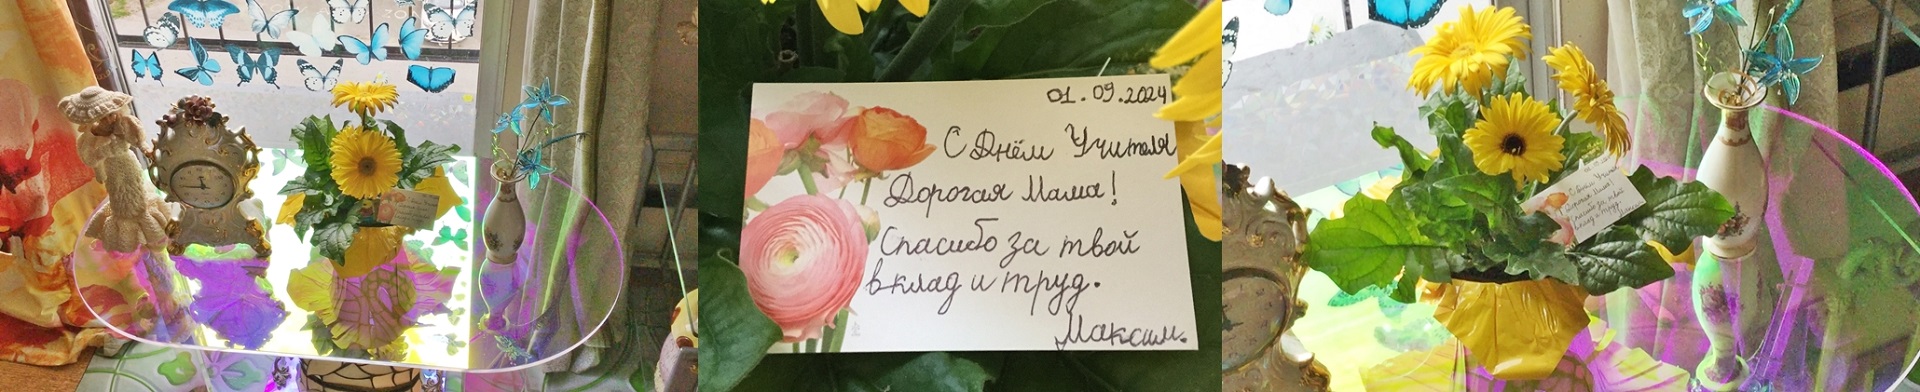 01.09.2024
С Днём Учителя
Дорогая Мама!
Спасибо за твой
вклад и труд.
Максим.